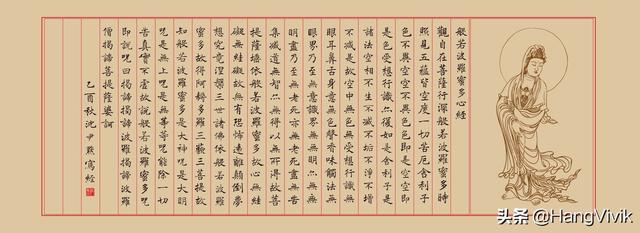 般若波羅蜜多心經
觀自在菩薩行深般若波羅蜜多時
照見五蘊皆空度一切苦厄舍利子
色不異空空不異色色即是空空即
是色受想行識亦復如是舍利子是
諸法空相不生不滅不垢不淨不增
不減是故空中無色無受想行識無
眼耳鼻舌身意無色聲香味觸法無
眼界乃至無意識界無無明亦無無
明盡乃至無老死亦無老死盡無苦
集滅道無智亦無得以無所得故菩
提薩埵依般若波羅蜜多故心無罣
礙無罣礙故無有恐怖遠離顛倒夢
想究竟涅槃三世諸佛依般若波羅
蜜多故得阿耨多羅三藐三菩提故
知般若波羅蜜多是大神咒是大明
咒是無上咒是無等等咒能除一切
苦真實不虛故說般若波羅蜜多咒
即說咒曰揭諦揭諦波羅揭諦波羅
僧揭諦菩提薩婆訶
乙酉秋沈尹默寫經
头条 @HangVivik